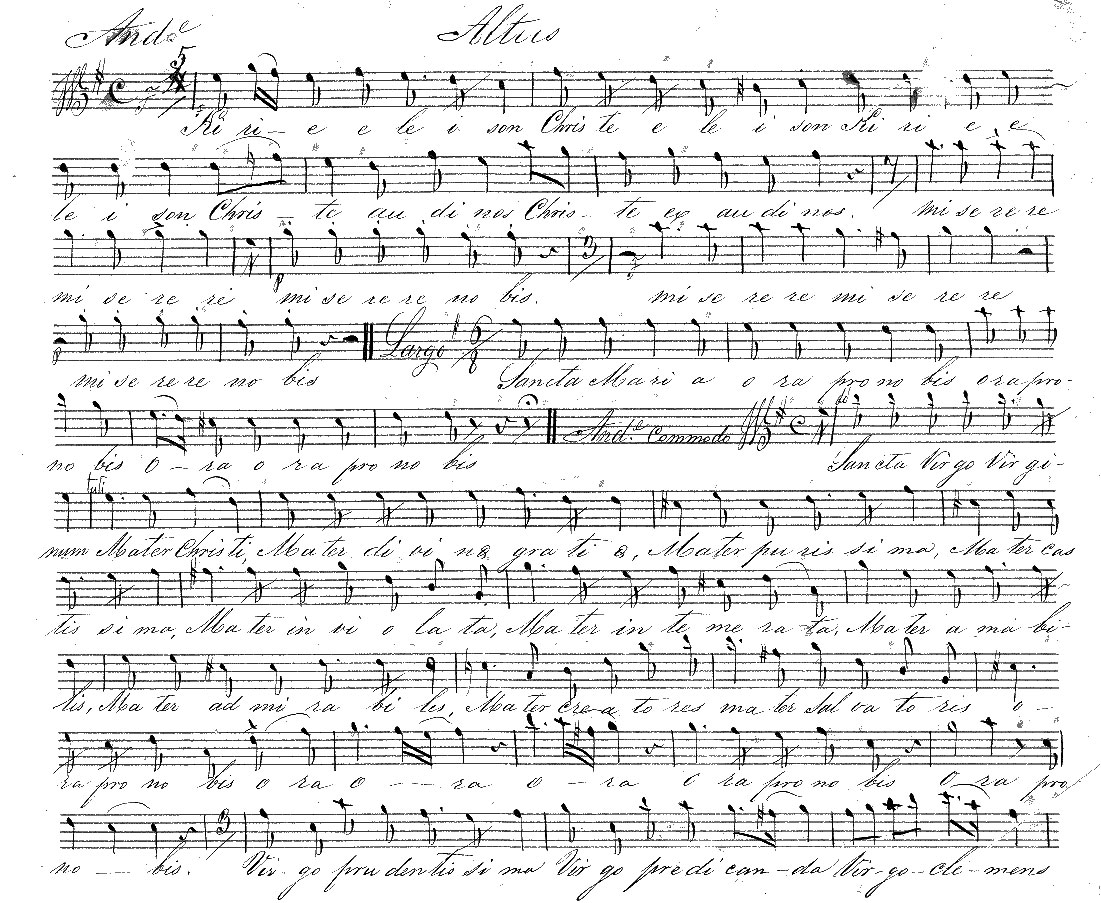 And.e Altus
5
Ki ri - e e le i son Chris te e le i son Ki ri e e
le i son Chris - te au di nos Chris - te ex au di nos. mi se re re
mi se re re mi se re re no bis. mi se re re mi se re re
mi se re re no bis Largo 6/8 Sancta Mari a o ra pro no bis ora pro-
no bis o - ra o ra pro no bis And.e Commodo Sancta Virgo Virgi-
num Mater Christi, Mater di vi næ gra ti æ, Mater pu ris si ma, Mater cas
tis si ma, Ma ter in vi o la ta, Ma ter in te me ra ta, Ma ter a ma bi-
lis, Ma ter ad mi ra bi lis, Mater Cre a to ris ma ter Sal va to ris o -
ra pro no bis o ra o - - ra o - ra o ra pro no bis o ra pro
no - - bis. Vir - go pru dentis si ma Vir go predi can - da Vir - go - cle - mens